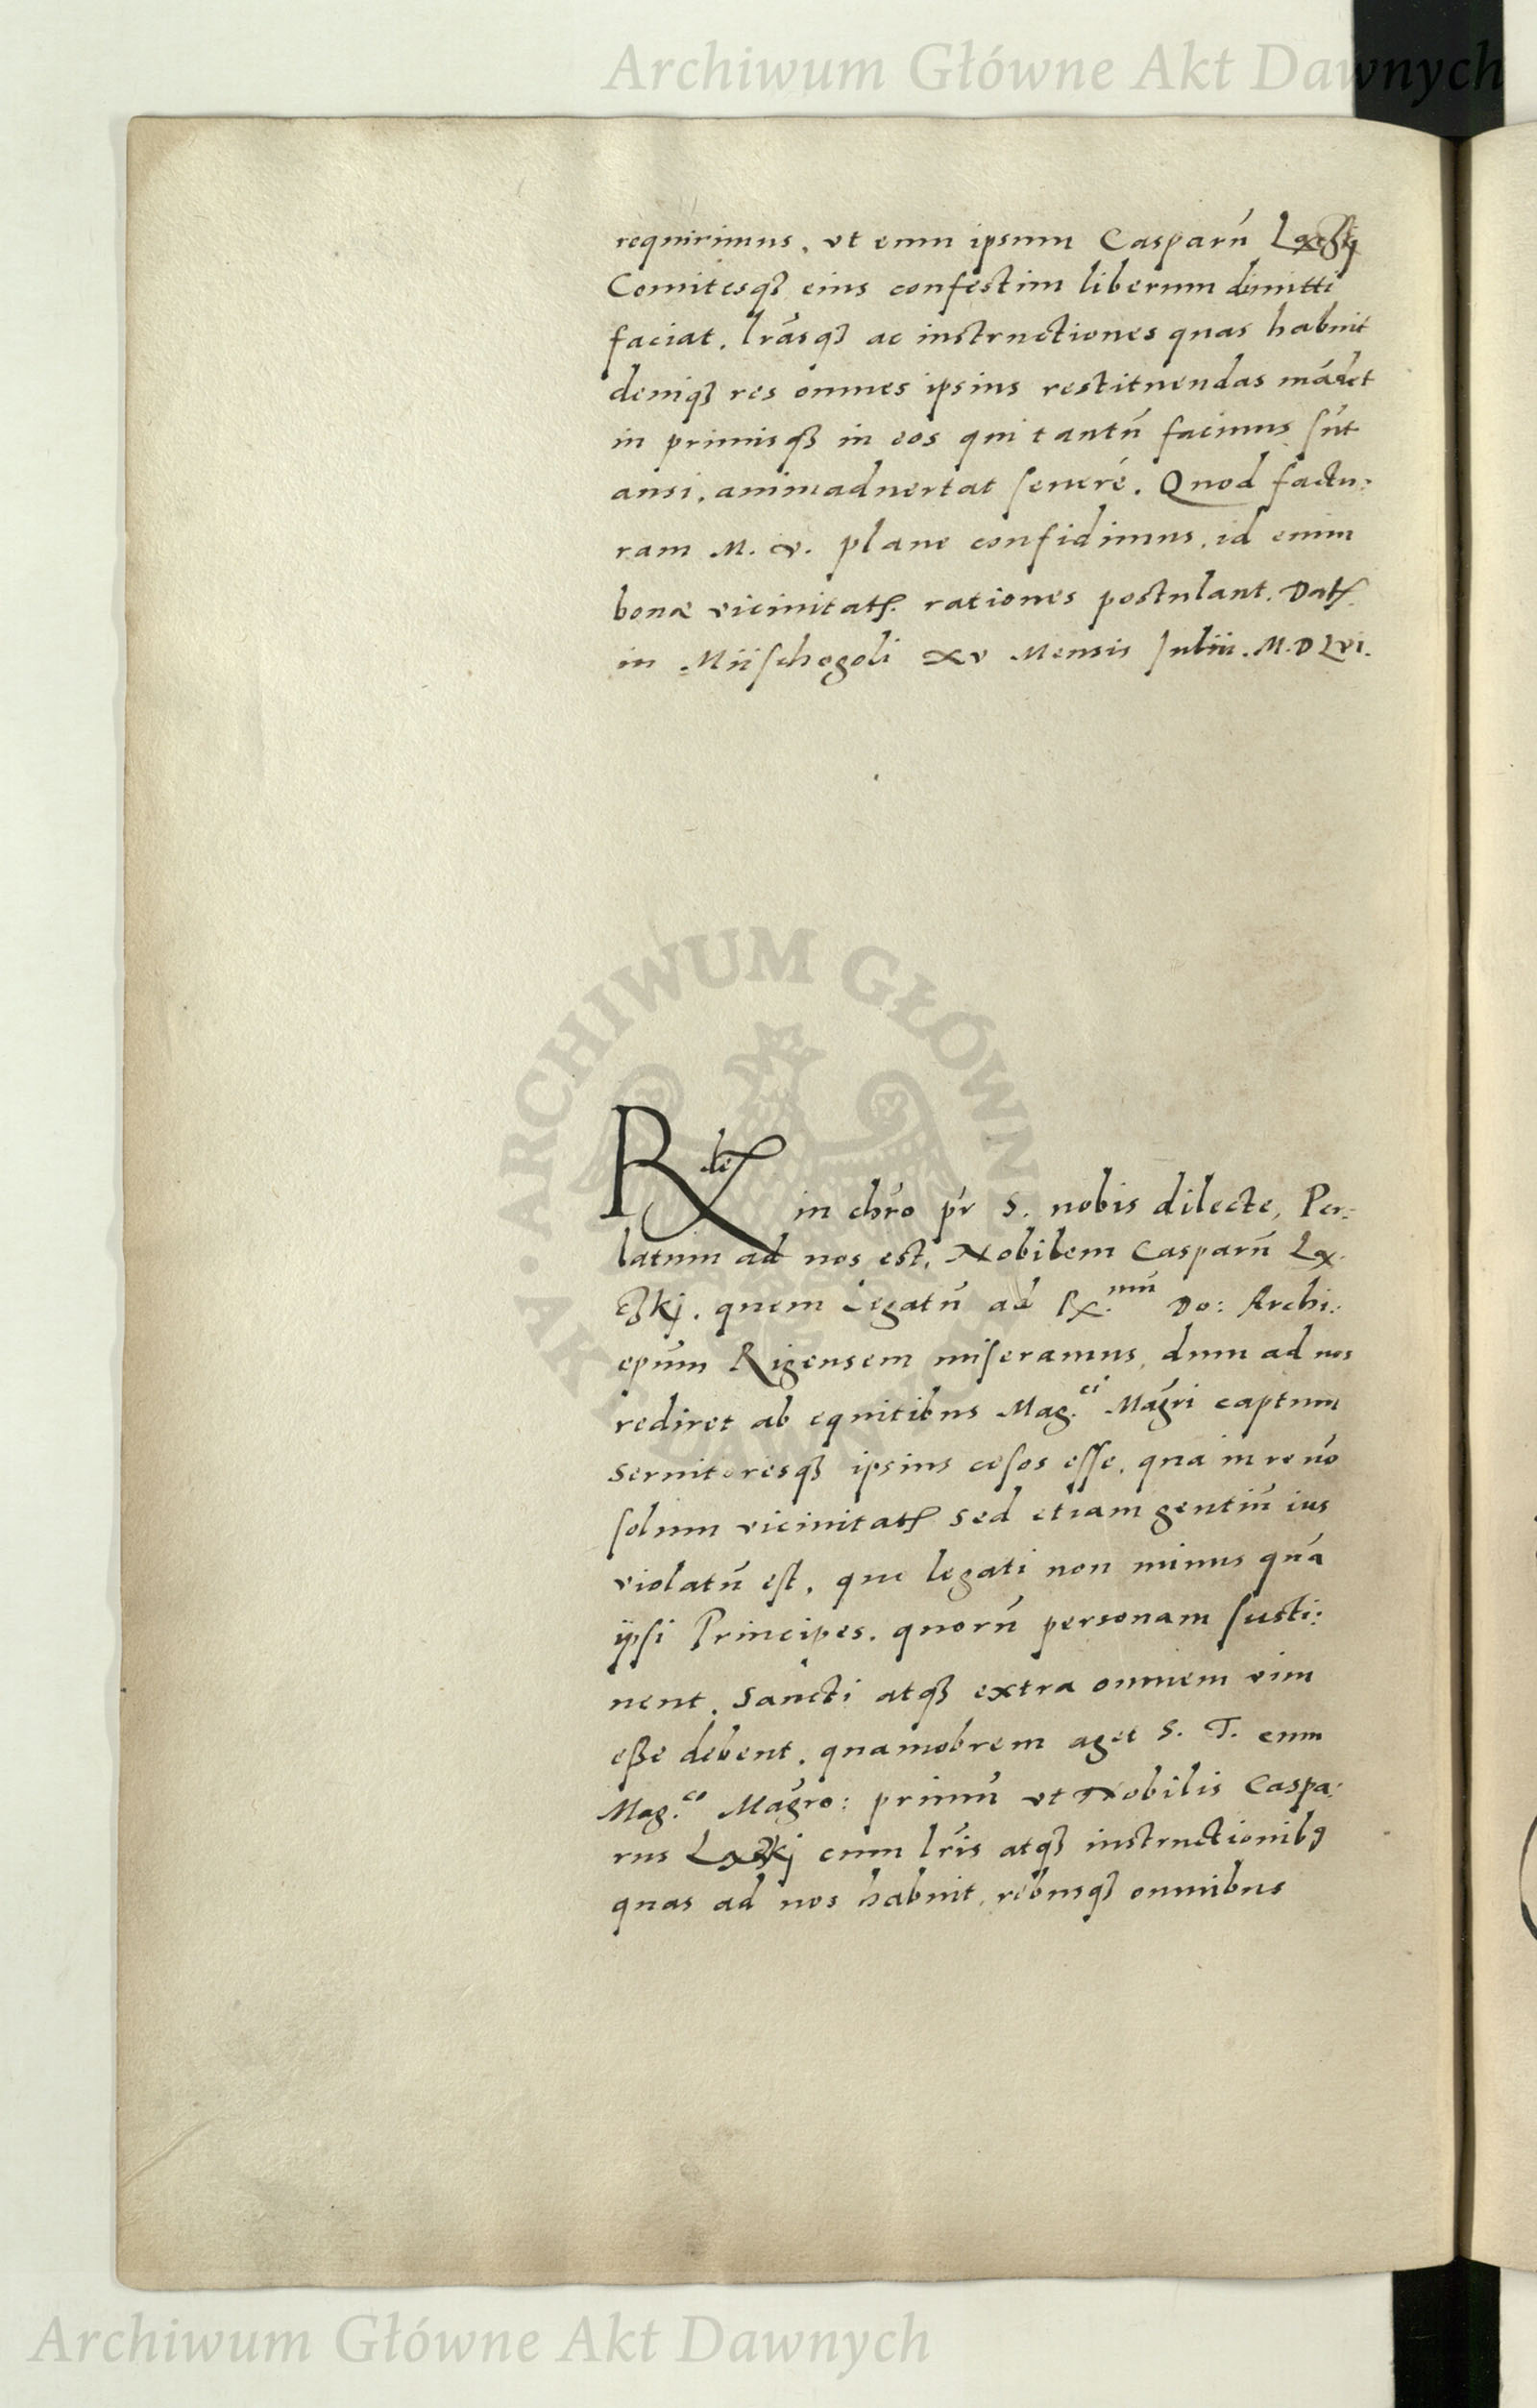 Archiwum Główne Akt Dawnych
requirimus, vt eum ipsum Casparū
Comitesqꝫ eius confestim liberum dimitti
faciat, lrāsqꝫ ac instructiones quas habuit
deniqꝫ res omnes ipsius restituendas mādet
in primisqꝫ in eos qui tantū facinus sūt
ausi, animaduertat seueré. Quod factu:
ram M. v. plane confidimus, id enim
bonæ vicinitatꝭ rationes postulant. Datꝭ
in Miischogoli xv Mensis Iulii. M.D Lvi.
ARCHIWUM GŁÓWNE AKT DAWNYCH
Rde in chrō pr̄ S. nobis dilecte, Per:
latum ad nos est, Nobilem Casparū Lą
ckj, quem Legatū ad Rx.mū Do: Archi:
epūm Rigensem miseramus, dum ad nos
rediret ab equitibus Mag.ci Magr̄i captum
seruitoresqꝫ ipsius cesos esse, qua in re nō
solum vicinitatꝭ sed etiam gentiū ius
violatū est, que legati non minus quā
ipsi Principes, quorū personam susti:
nent, Sancti atqꝫ extra omnem vim
eße debent, quamobrem aget S. T. cum
Mag.co Magr̄o: primū vt Nobilis Caspa:
rus cum lr̄is atqꝫ instructionibꝯ
quas ad nos habuit, rebusqꝫ omnibus
Archiwum Główne Akt Dawnych